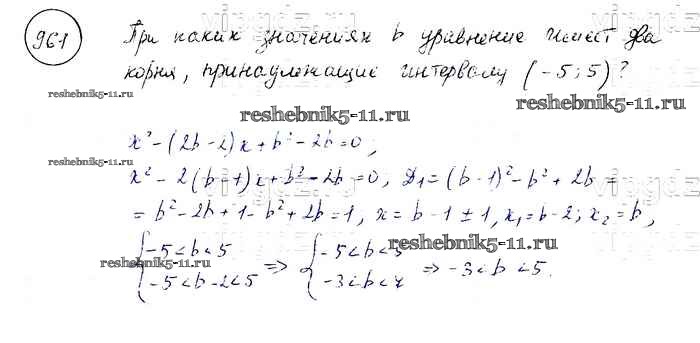 961 При каких значениях b уравнение имеет два
корня, принадлежащие интервалу (-5; 5)?
reshebnik5-11.ru
reshebnik5-11.ru
reshebnik5-11.ru
x² - (2b - 2)x + b² - 2b = 0,
reshebnik5-11.ru
x² - 2(b - 1)x + b² - 2b = 0, Д₁ = (b - 1)² - b² + 2b =
= b² - 2b + 1 - b² + 2b = 1, x = b - 1 ± 1, x₁ = b - 2; x₂ = b,
{ -5 < b < 5 ⇒ { -5 < b < 5 ⇒ -3 < b < 5.
reshebnik5-11.ru
reshebnik5-11.ru
-5 < b - 2 < 5 -3 < b < 7